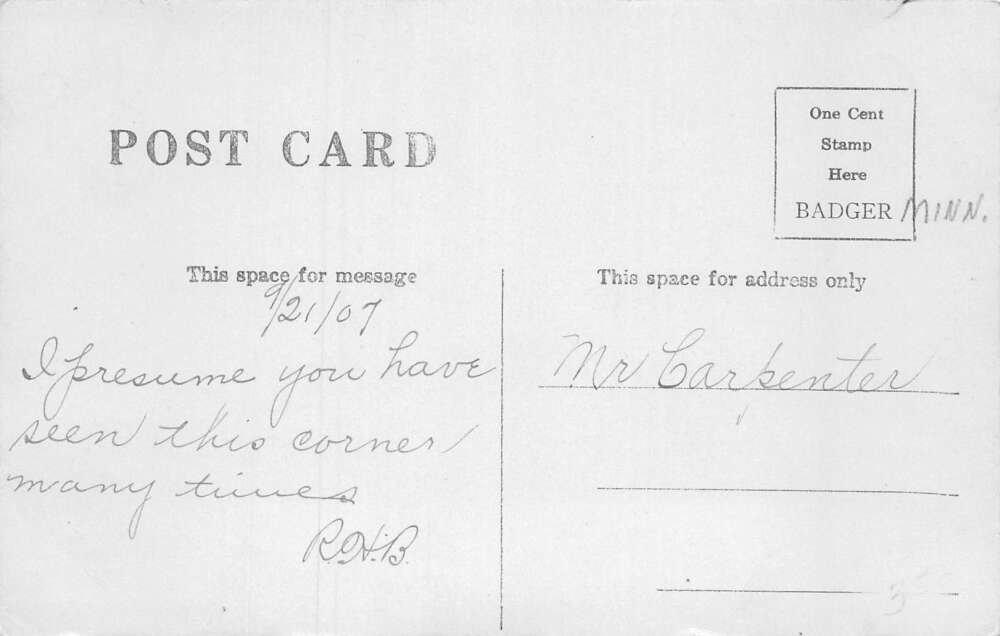 POST CARD
One Cent
Stamp
Here
BADGER MINN.
This space for message
9/21/07
I presume you have
seen this corner
many times
R.H.B.
This space for address only
Mr Carpenter